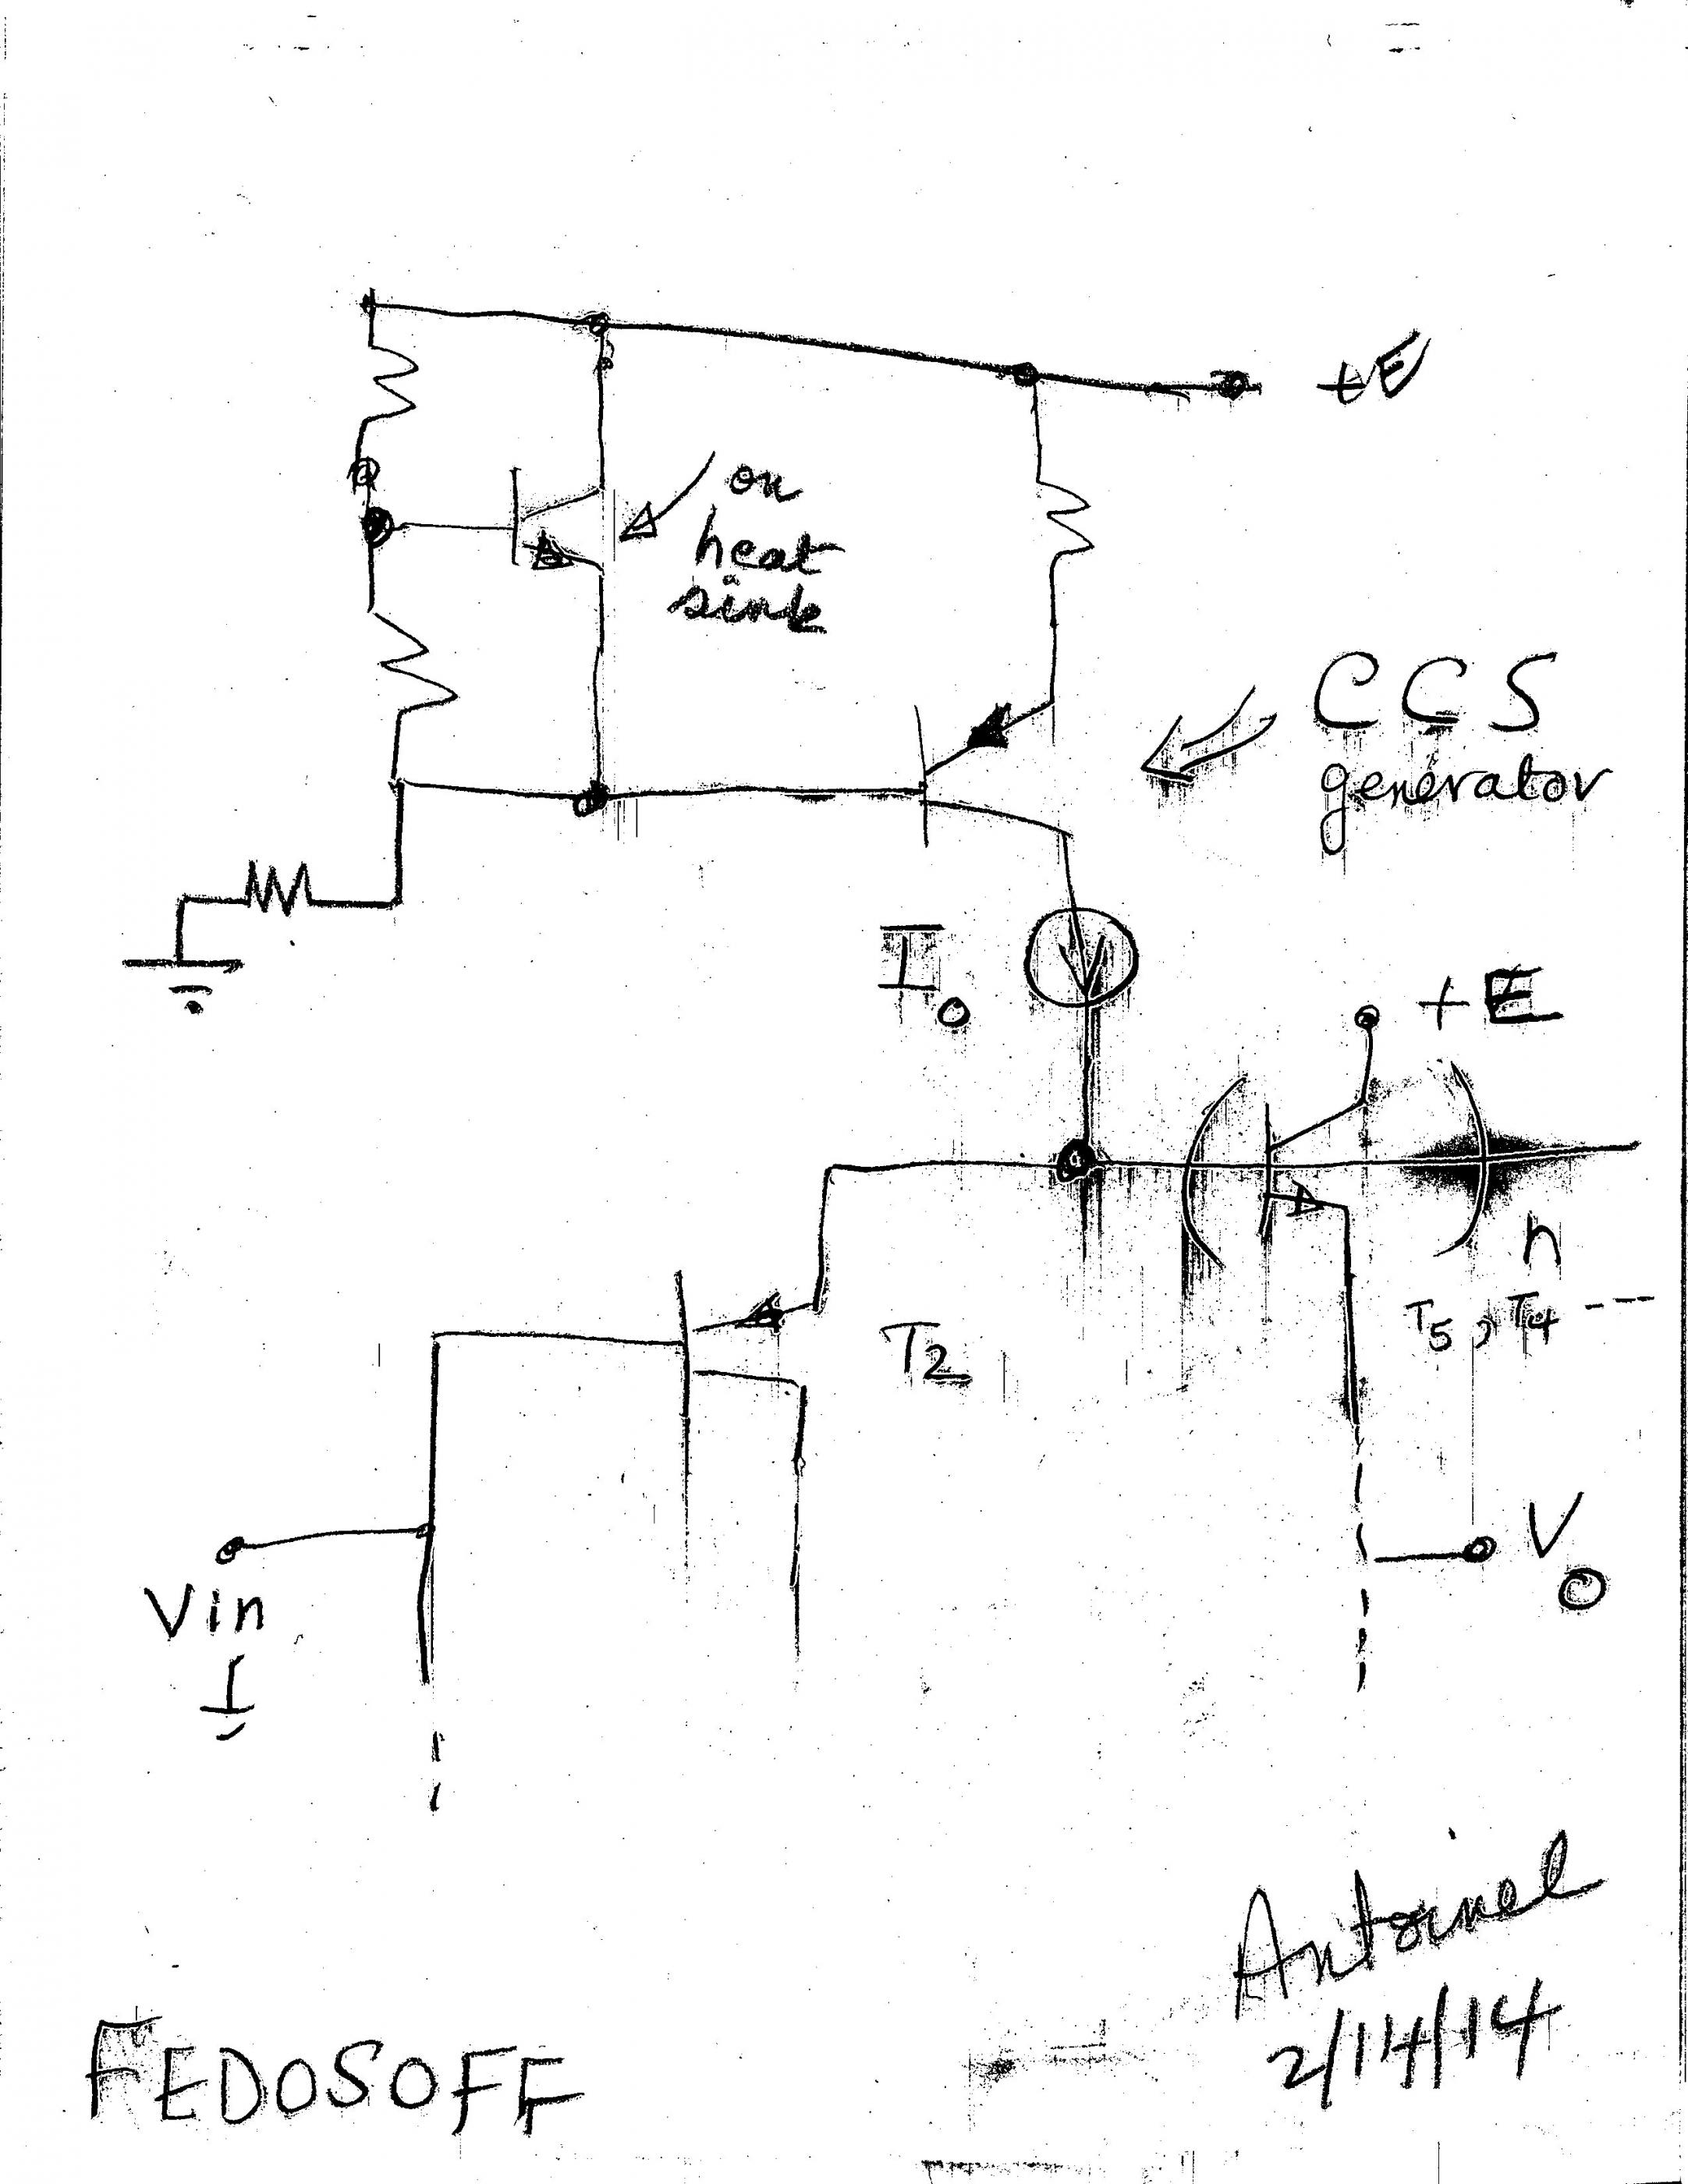 +E
on
heat
sink
CCS
generator
Io
+E
n
T2
T5, T4 ---
Vo
Vin
Antoinel
2/14/14
FEDOSOFF